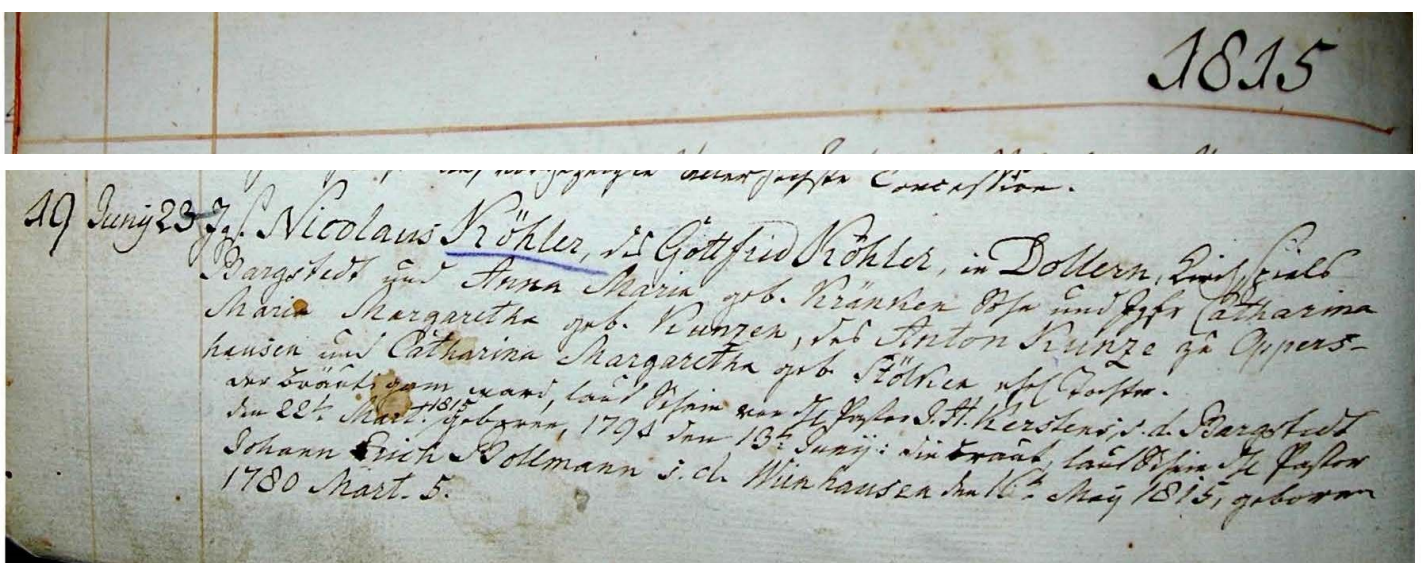 1815
Concession.
19 Juny 23 Jgs. Nicolaus Köhler, des Gottfried Köhler, in Dollern, Kirchspiels
Bargstedt und Anna Maria geb. Kränken Sohn und Jgfr Catharina
Maria Margaretha geb. Kunzen, des Anton Kunze zu Oppers-
hausen und Catharina Margaretha geb. Stölken ehel Tochter.
der Bräutigam ward, laut Schein von Pastor J. H. Kerstens, s. d. Bargstedt
den 22t. Mart. 1815 geboren, 1794 den 13t Juny: die Braut, laut Schein Pastor
Johann Erich Bollmann s. d. Wienhausen den 16t May 1815, geboren
1780 Mart. 5.